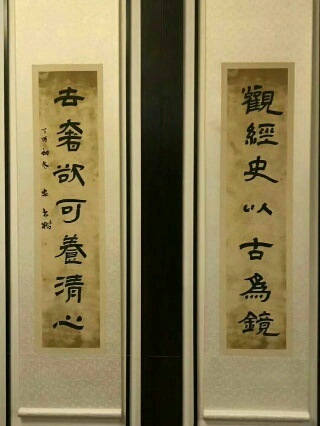 觀經史以古為鏡
去奢欲可養清心